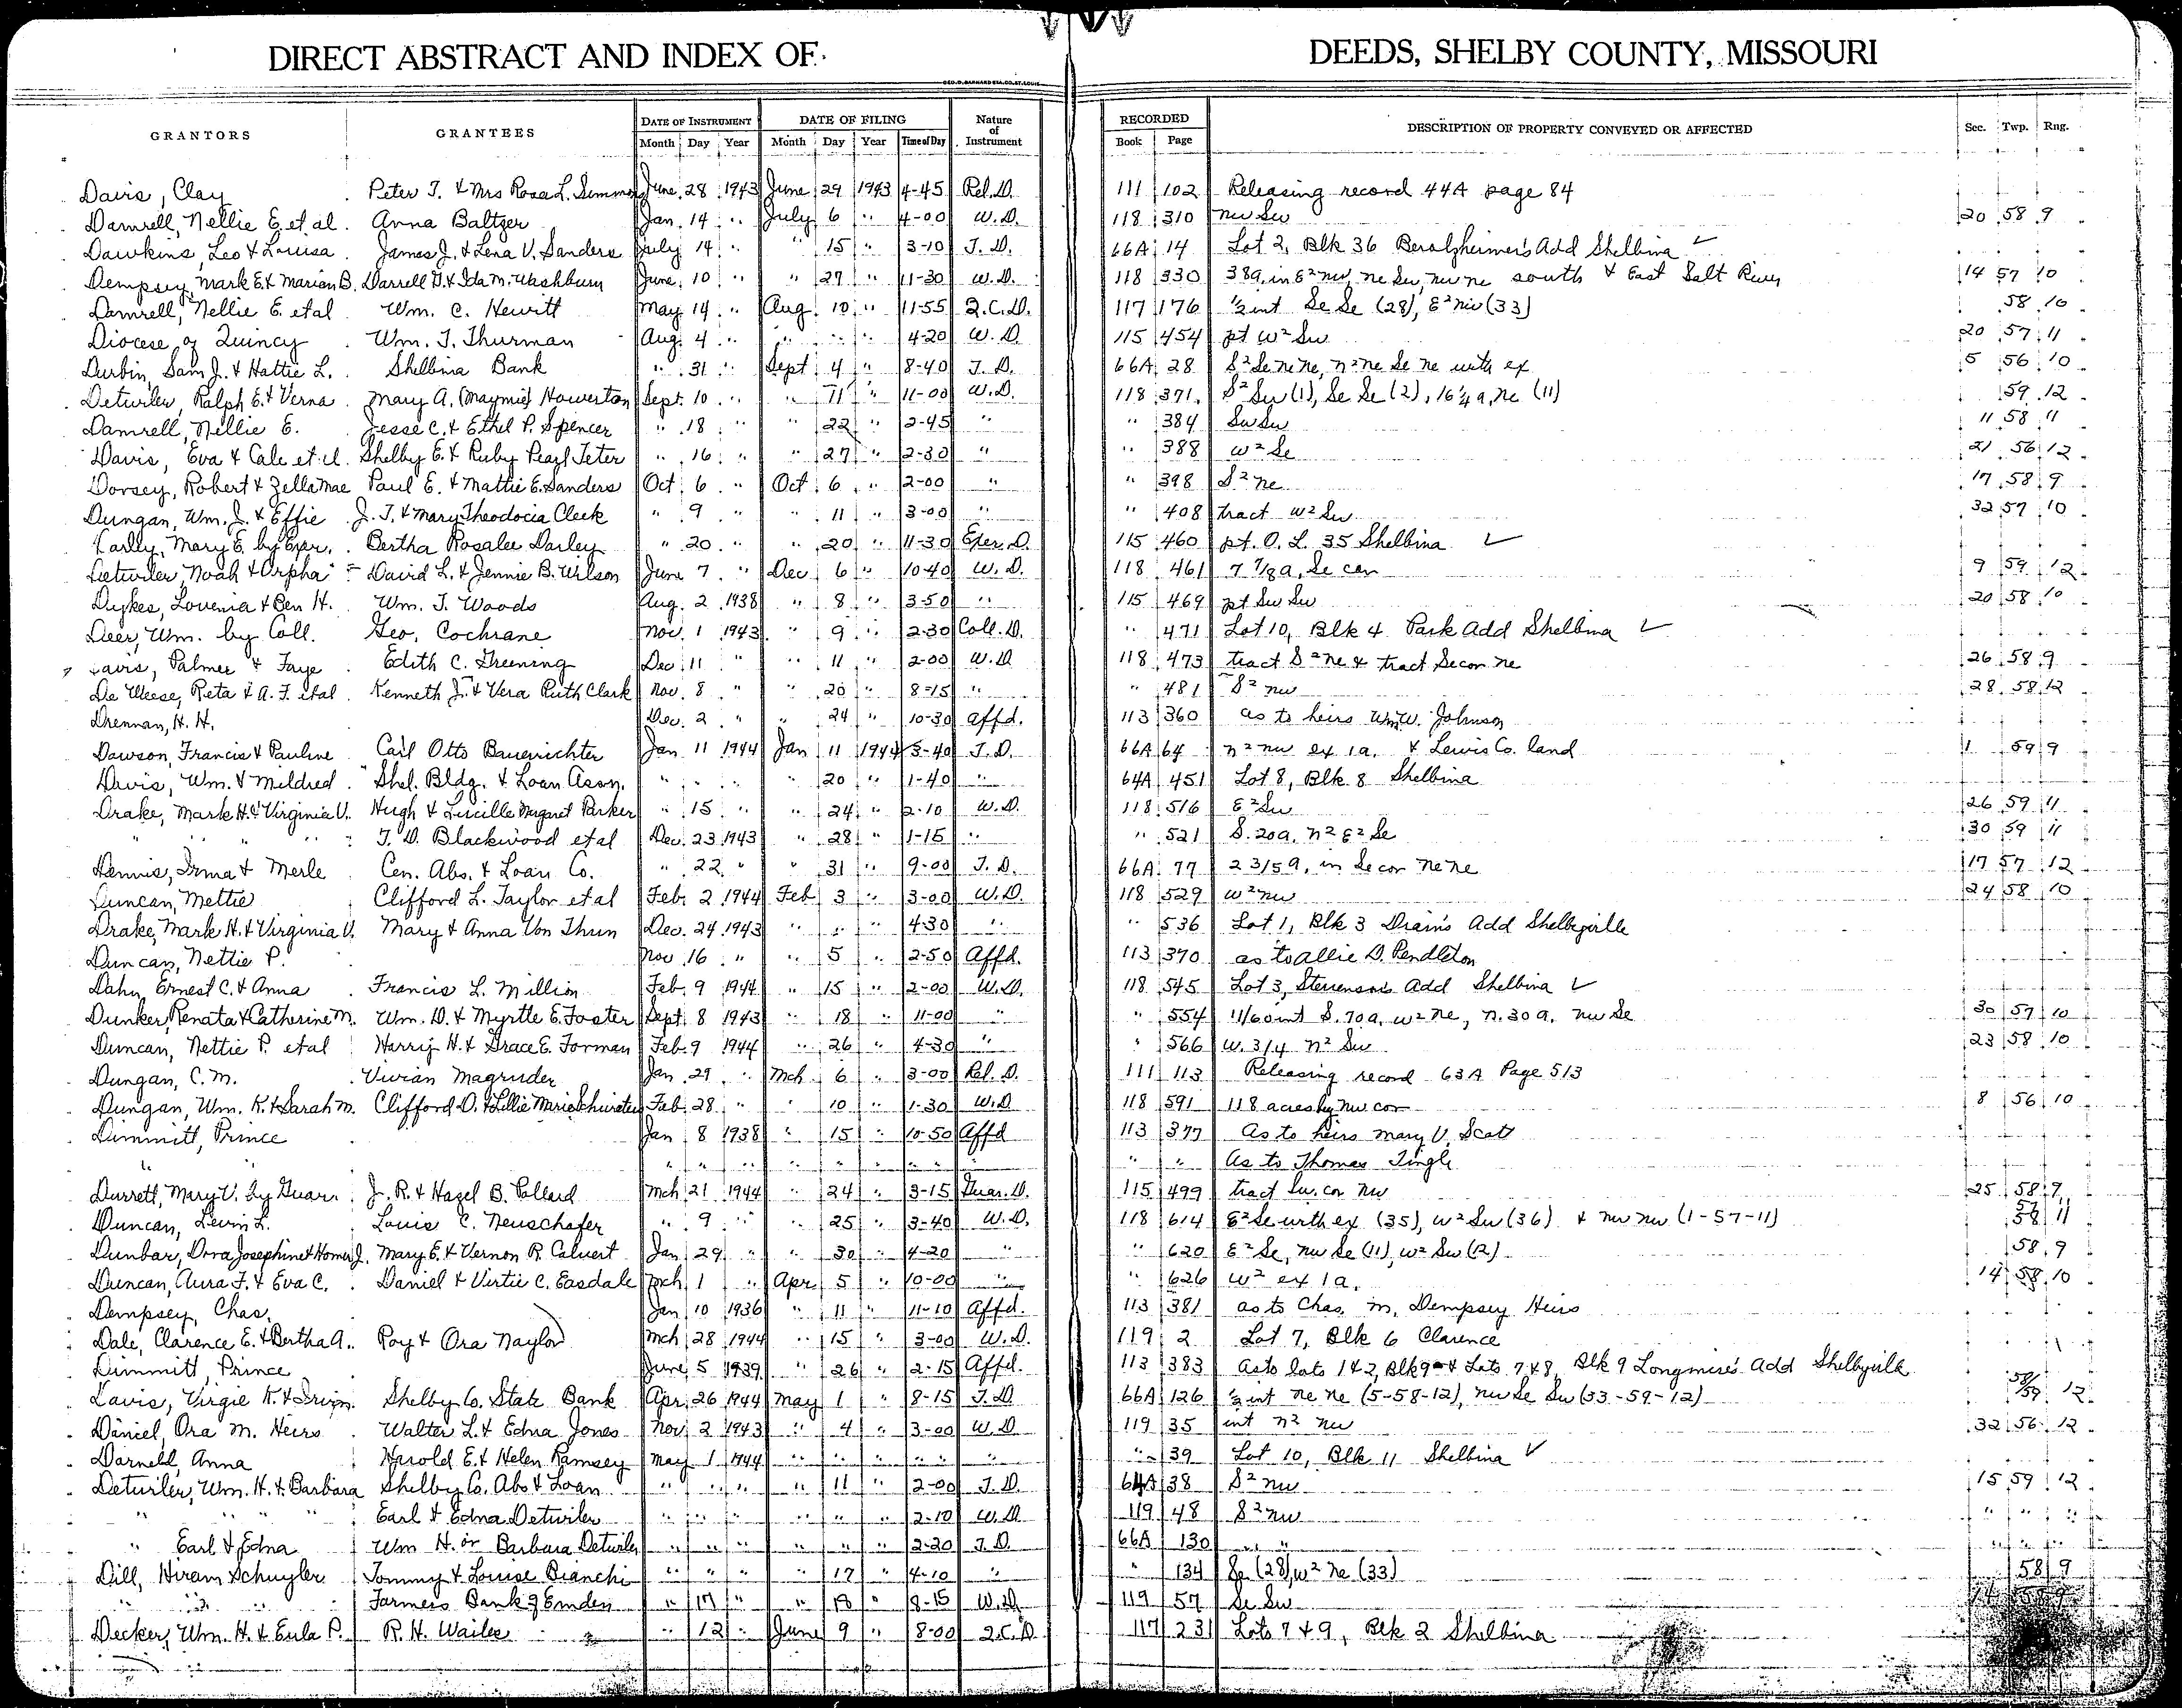 DIRECT ABSTRACT AND INDEX OF DEEDS, SHELBY COUNTY, MISSOURI
GEO. D. BARNARD STA. CO. ST. LOUIS
GRANTORS GRANTEES DATE OF INSTRUMENT DATE OF FILING Nature of Instrument RECORDED DESCRIPTION OF PROPERTY CONVEYED OR AFFECTED Sec. Twp. Rng.
Month Day Year Month Day Year Time of Day Book Page
Davis, Clay Peter T. & Mrs Rosa L. Simmons June 28 1943 June 29 1943 4-45 Rel. D. 111 102 Releasing record 44A page 84
Damrell, Nellie E. et al. Anna Baltzer Jan. 14 " July 6 " 4-00 W. D. 118 310 nw Sw 20 58 9
Dawkins, Leo & Louisa James J. & Lena V. Sanders July 14 " " 15 " 3-10 T. D. 66A 14 Lot 2, Blk 36 Add Shelbina ✓
Dempsey, Mark E. & Marian B. Darrell G. & Ida M. Washburn June 10 " " 27 " 11-30 W. D. 118 330 38a, in E² nw, ne Sw, nw ne south & East Salt River 14 57 10
Damrell, Nellie E. et al Wm. C. Hewitt May 14 " Aug. 10 " 11-55 Q. C. D. 117 176 ½ int Se Se (28), E² nw (33) 58 10
Diocese of Quincy Wm. T. Thurman Aug. 4 " " " " 4-20 W. D. 115 454 pt W² Sw 20 57 11
Durbin, Sam J. & Hattie L. Shelbina Bank " 31 " Sept 4 " 8-40 T. D. 66A 28 S² Se ne ne, n² ne Se ne with ex 5 56 10
Detwiler, Ralph E. & Verna Mary A. (Maymie) Howerton Sept. 10 " " 11 " 11-00 W. D. 118 371 S² Sw (1), Se Se (2), 16¼ a, ne (11) 59 12
Damrell, Nellie E. Jesse C. & Ethel P. Spencer " 18 " " 22 " 2-45 " " 384 Sw Sw 11 58 11
Davis, Eva & Cale et al. Shelby E. & Ruby Pearl Teter " 16 " " 27 " 2-30 " " 388 W² Se 21 56 12
Dorsey, Robert & Zella Mae Paul E. & Mattie E. Sanders Oct. 6 " Oct. 6 " 2-00 " " 398 S² ne 17 58 9
Dungan, Wm. J. & Effie J. T. & Mary Theodocia Cleek " 9 " " 11 " 3-00 " " 408 tract W² Sw 32 57 10
Mary E. by Exr. Bertha Rosalee Darley " 20 " " 20 " 11-30 Exer. D. 115 460 pt. O. L. 35 Shelbina ✓
Detwiler, Noah & Orpha David L. & Jennie B. Wilson June 7 " Dec 6 " 10-40 W. D. 118 461 7 7/8 a, Se cor 9 59 12
Dykes, Louenia & Ben H. Wm. T. Woods Aug. 2 1938 " 8 " 3-50 " 115 469 pt Sw Sw 20 58 10
Deer, Wm. by Coll. Geo. Cochrane Nov. 1 1943 " 9 " 2-30 Coll. D. " 471 Lot 10, Blk 4 Park Add Shelbina ✓
Davis, Palmer & Faye Edith C. Greening Dec 11 " " 11 " 2-00 W. D 118 473 tract S² ne & tract Se cor ne 26 58 9
De Weese, Reta & A. F. et al Kenneth J. & Vera Ruth Clark Nov. 8 " " 20 " 8-15 " " 481 S² nw 28 58 12
Drennan, H. H. Dec. 2 " " 24 " 10-30 Affd. 113 360 as to heirs Wm W. Johnson
Dawson, Francis & Pauline Carl Otto Bauerrichter Jan 11 1944 Jan 11 1944 3-40 T. D. 66A 64 n² nw ex 1a. & Lewis Co. land 1 59 9
Davis, Wm. & Mildred Shel. Bldg. & Loan Assn. " " " " 20 " 1-40 " 64A 451 Lot 8, Blk 8 Shelbina
Drake, Mark H. & Virginia V. Hugh & Lucille Margaret Parker " 15 " " 24 " 2-10 W. D. 118 516 E² Sw 26 59 11
" " " T. D. Blackwood et al Dec. 23 1943 " 28 " 1-15 " " 521 S. 20a, n² E² Se 30 59 11
Dennis, Irma & Merle Cen. Abs. & Loan Co. " 22 " " 31 " 9-00 T. D. 66A 77 2 3/5 a, in Se cor ne ne 17 57 12
Duncan, Mettie Clifford L. Taylor et al Feb. 2 1944 Feb. 3 " 3-00 W. D. 118 529 W² nw 24 58 10
Drake, Mark H. & Virginia V. Mary & Anna Von Thun Dec. 24 1943 " " 4-30 " " 536 Lot 1, Blk 3 Drains Add Shelbyville
Duncan, Nettie P. Nov. 16 " " 5 " 2-50 Affd. 113 370 as to Allie D. Pendleton
Dahn, Ernest C. & Anna Francis L. Million Feb. 9 1944 " 15 " 2-00 W. D. 118 545 Lot 3, Stevenson's Add Shelbina ✓
Dunker, Renata & Catherine M. Wm. D. & Myrtle E. Foster Sept. 8 1943 " 18 " 11-00 " " 554 11/60 int S. 70a, W² ne, n. 30a, nw Se 30 57 10
Duncan, Nettie P. et al Harry H. & Grace E. Forman Feb. 9 1944 " 26 " 4-30 " " 566 W. 3/4 n² Sw 23 58 10
Dungan, C. M. Vivian Magruder Jan. 29 " Mch 6 " 3-00 Rel. D. 111 113 Releasing record 63A Page 513
Dungan, Wm. K. & Sarah M. Clifford D. & Lillie Marie Feb. 28 " " 10 " 1-30 W. D 118 591 118 acres by nw cor 8 56 10
Dimmitt, Prince Jan 8 1938 " 15 " 10-50 Affd 113 377 As to heirs Mary V. Scott
" " " " " " " " " " " As to Thomas Tingle
Durrett, Mary V. by Guar. J. R. & Hazel B. Pollard Mch 21 1944 " 24 " 3-15 Guar. D. 115 499 tract Sw. cor nw 25 58 9
Duncan, Levin L. Louis C. Neuschafer " 9 " " 25 " 3-40 W. D. 118 614 E² Se with ex (35), W² Sw (36) & nw nw (1-57-11) 57 58 11
Dunbar, Dora Josephine & Homer J. Mary E. & Vernon R. Calvert Jan 29 " " 30 " 4-20 " " 620 E² Se, nw Se (11), W² Sw (12) 58 9
Duncan, Aura F. & Eva C. Daniel & Virtie C. Easdale Mch 1 " Apr 5 " 10-00 " " 626 W² ex 1a. 14 58 10
Dempsey, Chas. Jan 10 1936 " 11 " 11-10 Affd. 113 381 as to Chas. M. Dempsey Heirs
Dale, Clarence E. & Bertha A. Roy & Ora Naylor Mch 28 1944 " 15 " 3-00 W. D. 119 2 Lot 7, Blk 6 Clarence
Dimmitt, Prince June 5 1939 " 26 " 2-15 Affd. 113 383 As to lots 1 & 2, Blk 9 & Lots 7 & 8, Blk 9 Longmire's Add Shelbyville
Davis, Virgie K. & Irvin Shelby Co. State Bank Apr. 26 1944 May 1 " 8-15 T. D. 66A 126 ½ int ne ne (5-58-12), nw Se Sw (33-59-12) 58/59 12
Daniel, Ora M. Heirs Walter L. & Edna Jones Nov. 2 1943 " 4 " 3-00 W. D 119 35 int n² nw 32 56 12
Darnell, Anna Harold E. & Helen Ramsey May 1 1944 " " " " " " 39 Lot 10, Blk 11 Shelbina ✓
Detwiler, Wm. H. & Barbara Shelby Co. Abs & Loan " " " " 11 " 2-00 T. D. 64A 38 S² nw 15 59 12
" " " Earl & Edna Detwiler " " " " " " 2-10 W. D. 119 48 S² nw " " "
" Earl & Edna Wm H. or Barbara Detwiler " " " " " " 2-20 T. D. 66A 130 " " " " "
Dill, Hiram Schuyler Tommy & Louise Bianchi " " " " 17 " 4-10 " " 134 Se (28), W² ne (33) 58 9
" " Farmers Bank of Emden " 17 " " 18 " 8-15 W. D. 119 57 Se Sw
Decker, Wm. H. & Eula P. R. H. Wailes " 12 " June 9 " 8-00 Q. C. D 117 231 Lots 7 & 9, Blk 2 Shelbina